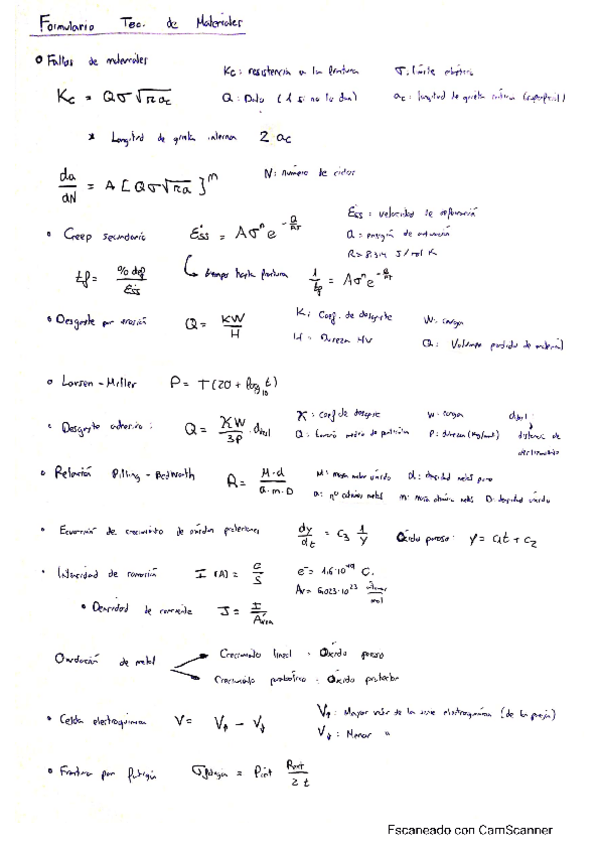 Formulario Tec. de Materiales
Fallos de materiales
Kc = Qσ√πac
Kc: resistencia a la fractura
σ: límite elástico
Q: Dato (1 si no lo dan)
ac: longitud de grieta crítica (superficial)
* Longitud de grieta interna 2 ac
da/dN = A [Qσ√πa]^m
N: número de ciclos
• Creep secundario Ėss = Aσ^n e^-Q/RT
Ėss: velocidad de
Q = energía de activación
R = 8.314 J/mol K
tf = % def / Ėss
tiempo hasta fractura
1/tf = Aσ^n e^-Q/RT
• Desgaste por erosión Q = KW/H
K: Coef. de desgaste
W: carga
H = Dureza HV
Q: Volumen perdido de material
Larsen - Miller P = T(20 + log10 t)
• Desgaste adhesivo: Q = KW/3P · dtotal
K: coef de desgaste
W: carga
dtotal: distancia de deslizamiento
P: dureza (Kg/mm²)
Relación Pilling - Bedworth R = M·d / a·m·D
M: masa molar óxido d: densidad metal puro
a: nº átomos metal m: masa atómica metal D: densidad óxido
• Ecuación de crecimiento de óxidos protectores dy/dt = C3 1/y Óxido poroso: y = at + C2
• Intensidad de corrosión I (A) = C/S
e⁻ = 1.6·10⁻¹⁹ C.
Av = 6.023·10²³ /mol
• Densidad de corriente J = I/Área
Oxidación de metal
Crecimiento lineal: Óxido poroso
Crecimiento parabólico: Óxido protector
• Celda electroquímica V = V↑ - V↓
V↑: Mayor valor de la serie electroquímica (de la pareja)
V↓: Menor "
• Fractura por fatiga σfatiga = Pint Rint/2t
Escaneado con CamScanner